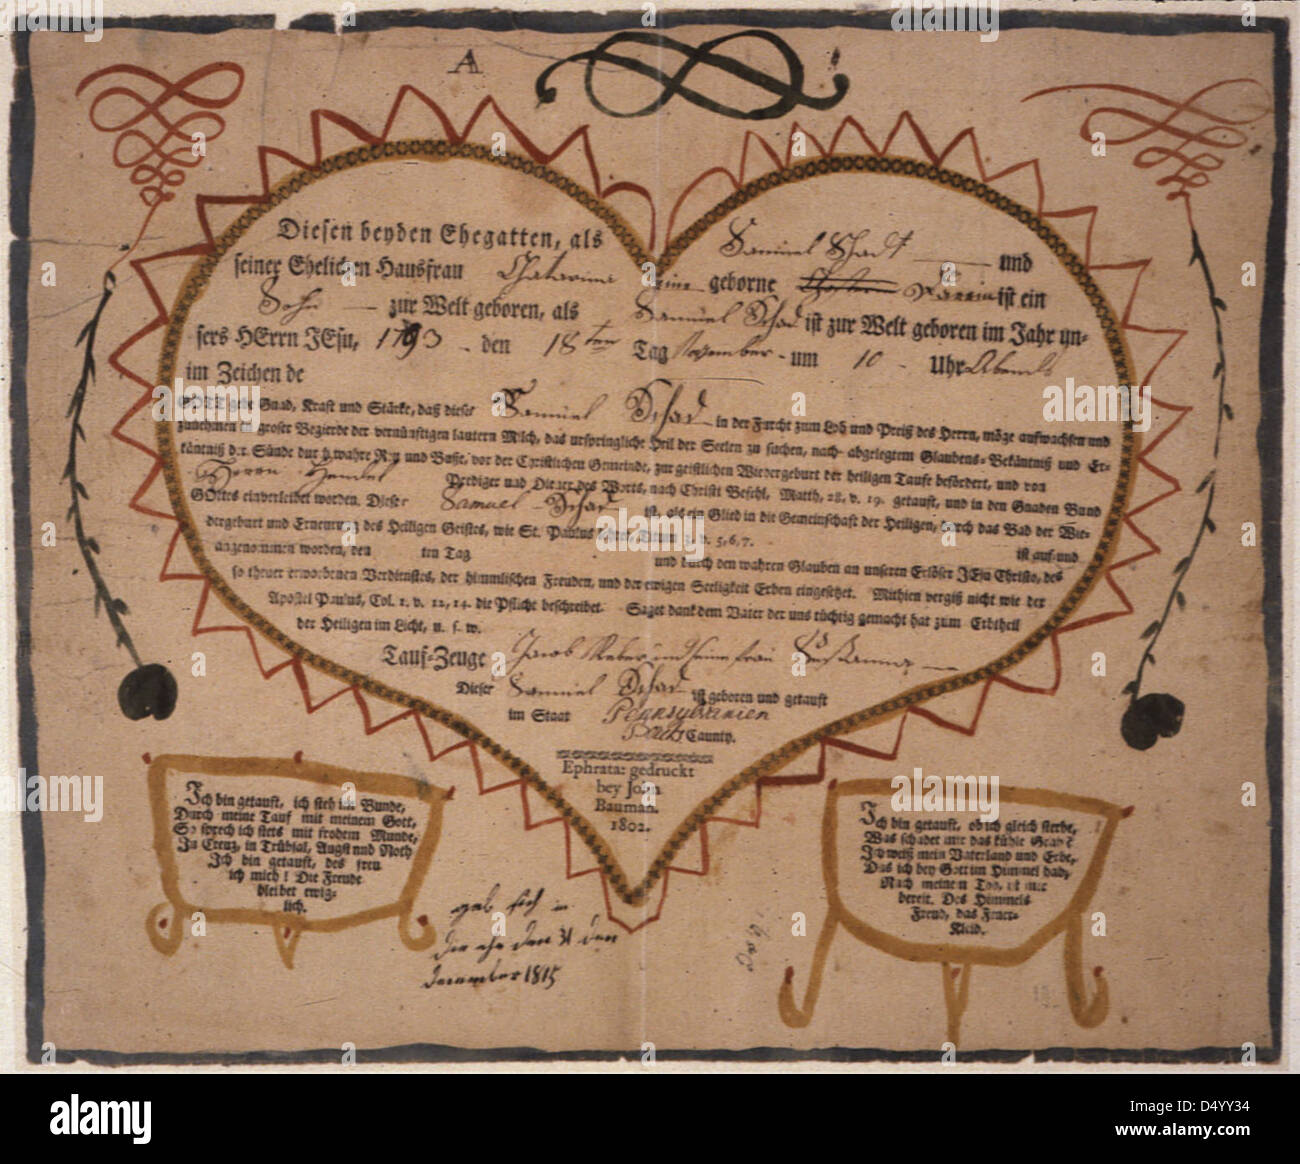 A
Diesen beyden Ehegatten, als Samuel Schadt und
seiner Ehelichen Hausfrau Chatarina eine geborne ist ein
Sohn zur Welt geboren, als Samuel Schad ist zur Welt geboren im Jahr un-
sers HErrn JEsu, 1793 den 18ten Tag November um 10 Uhr Abends
im Zeichen de
GOTT gebe Gnad, Kraft und Stärke, daß dieser Samuel Schad in der Furcht zum Lob und Preiß des Herrn, möge aufwachsen und
zunehmen in groser Begierde der vernünftigen lautern Milch, das urspringliche Heil der Seelen zu suchen, nach abgelegtem Glaubens-Bekäntniß und Er-
käntniß der Sünde durch wahre Reu und Busse, vor der Christlichen Gemeinde, zur geistlichen Wiedergeburt der heiligen Taufe befördert, und von
Herrn Hendel Prediger und Diener des Worts, nach Christi Befehl, Matth, 28, v. 19. getauft, und in den Gnaden Bund
GOttes einverleibet worden. Dieser Samuel Schad ist, als ein Glied in die Gemeinschaft der Heiligen, durch das Bad der Wie-
dergeburt und Erneurung des Heiligen Geistes, wie St. Paulus schreibt, Titum 3, v. 5,6,7.
angenommen worden, den ten Tag ist auf und
und durch den wahren Glauben an unseren Erlöser JEsu Christo, des
so theuer erworbenen Verdienstes, der himmlischen Freuden, und der ewigen Seeligkeit Erben eingesetzet. Mithien vergiß nicht wie der
Apostel Paulus, Col. 1. v. 12,14. die Pflicht beschreibet. Saget dank dem Vater der uns tüchtig gemacht hat zum Erbtheil
der Heiligen im Licht, u. s. w.
Tauf-Zeuge Jacob Reber und seine frau Susanna
Dieser Samuel Schad ist geboren und getauft
im Staat Pennsylvanien
Caunty.
Ephrata: gedruckt
bey John
Bauman.
1802.
Ich bin getauft, ich steh im Bunde,
Durch meine Tauf mit meinem Gott,
So sprech ich stets mit frohem Munde,
In Creuz, in Trübsal, Angst und Noth
Ich bin getauft, des freu
ich mich! Die Freude
bleibet ewig-
lich.
Ich bin getauft, ob ich gleich sterbe,
Was schadet mir das kühle Grab?
Ich weiß mein Vaterland und Erbe,
Das ich bey Gott im Himmel hab,
Nach meinem Tod, ist mir
bereit. Des Himmels
Freud, das Feuer-
Kleid.
gab sich in
die ehe den 31 den
December 1815
alamy
Image ID: D4YY34
www.alamy.com